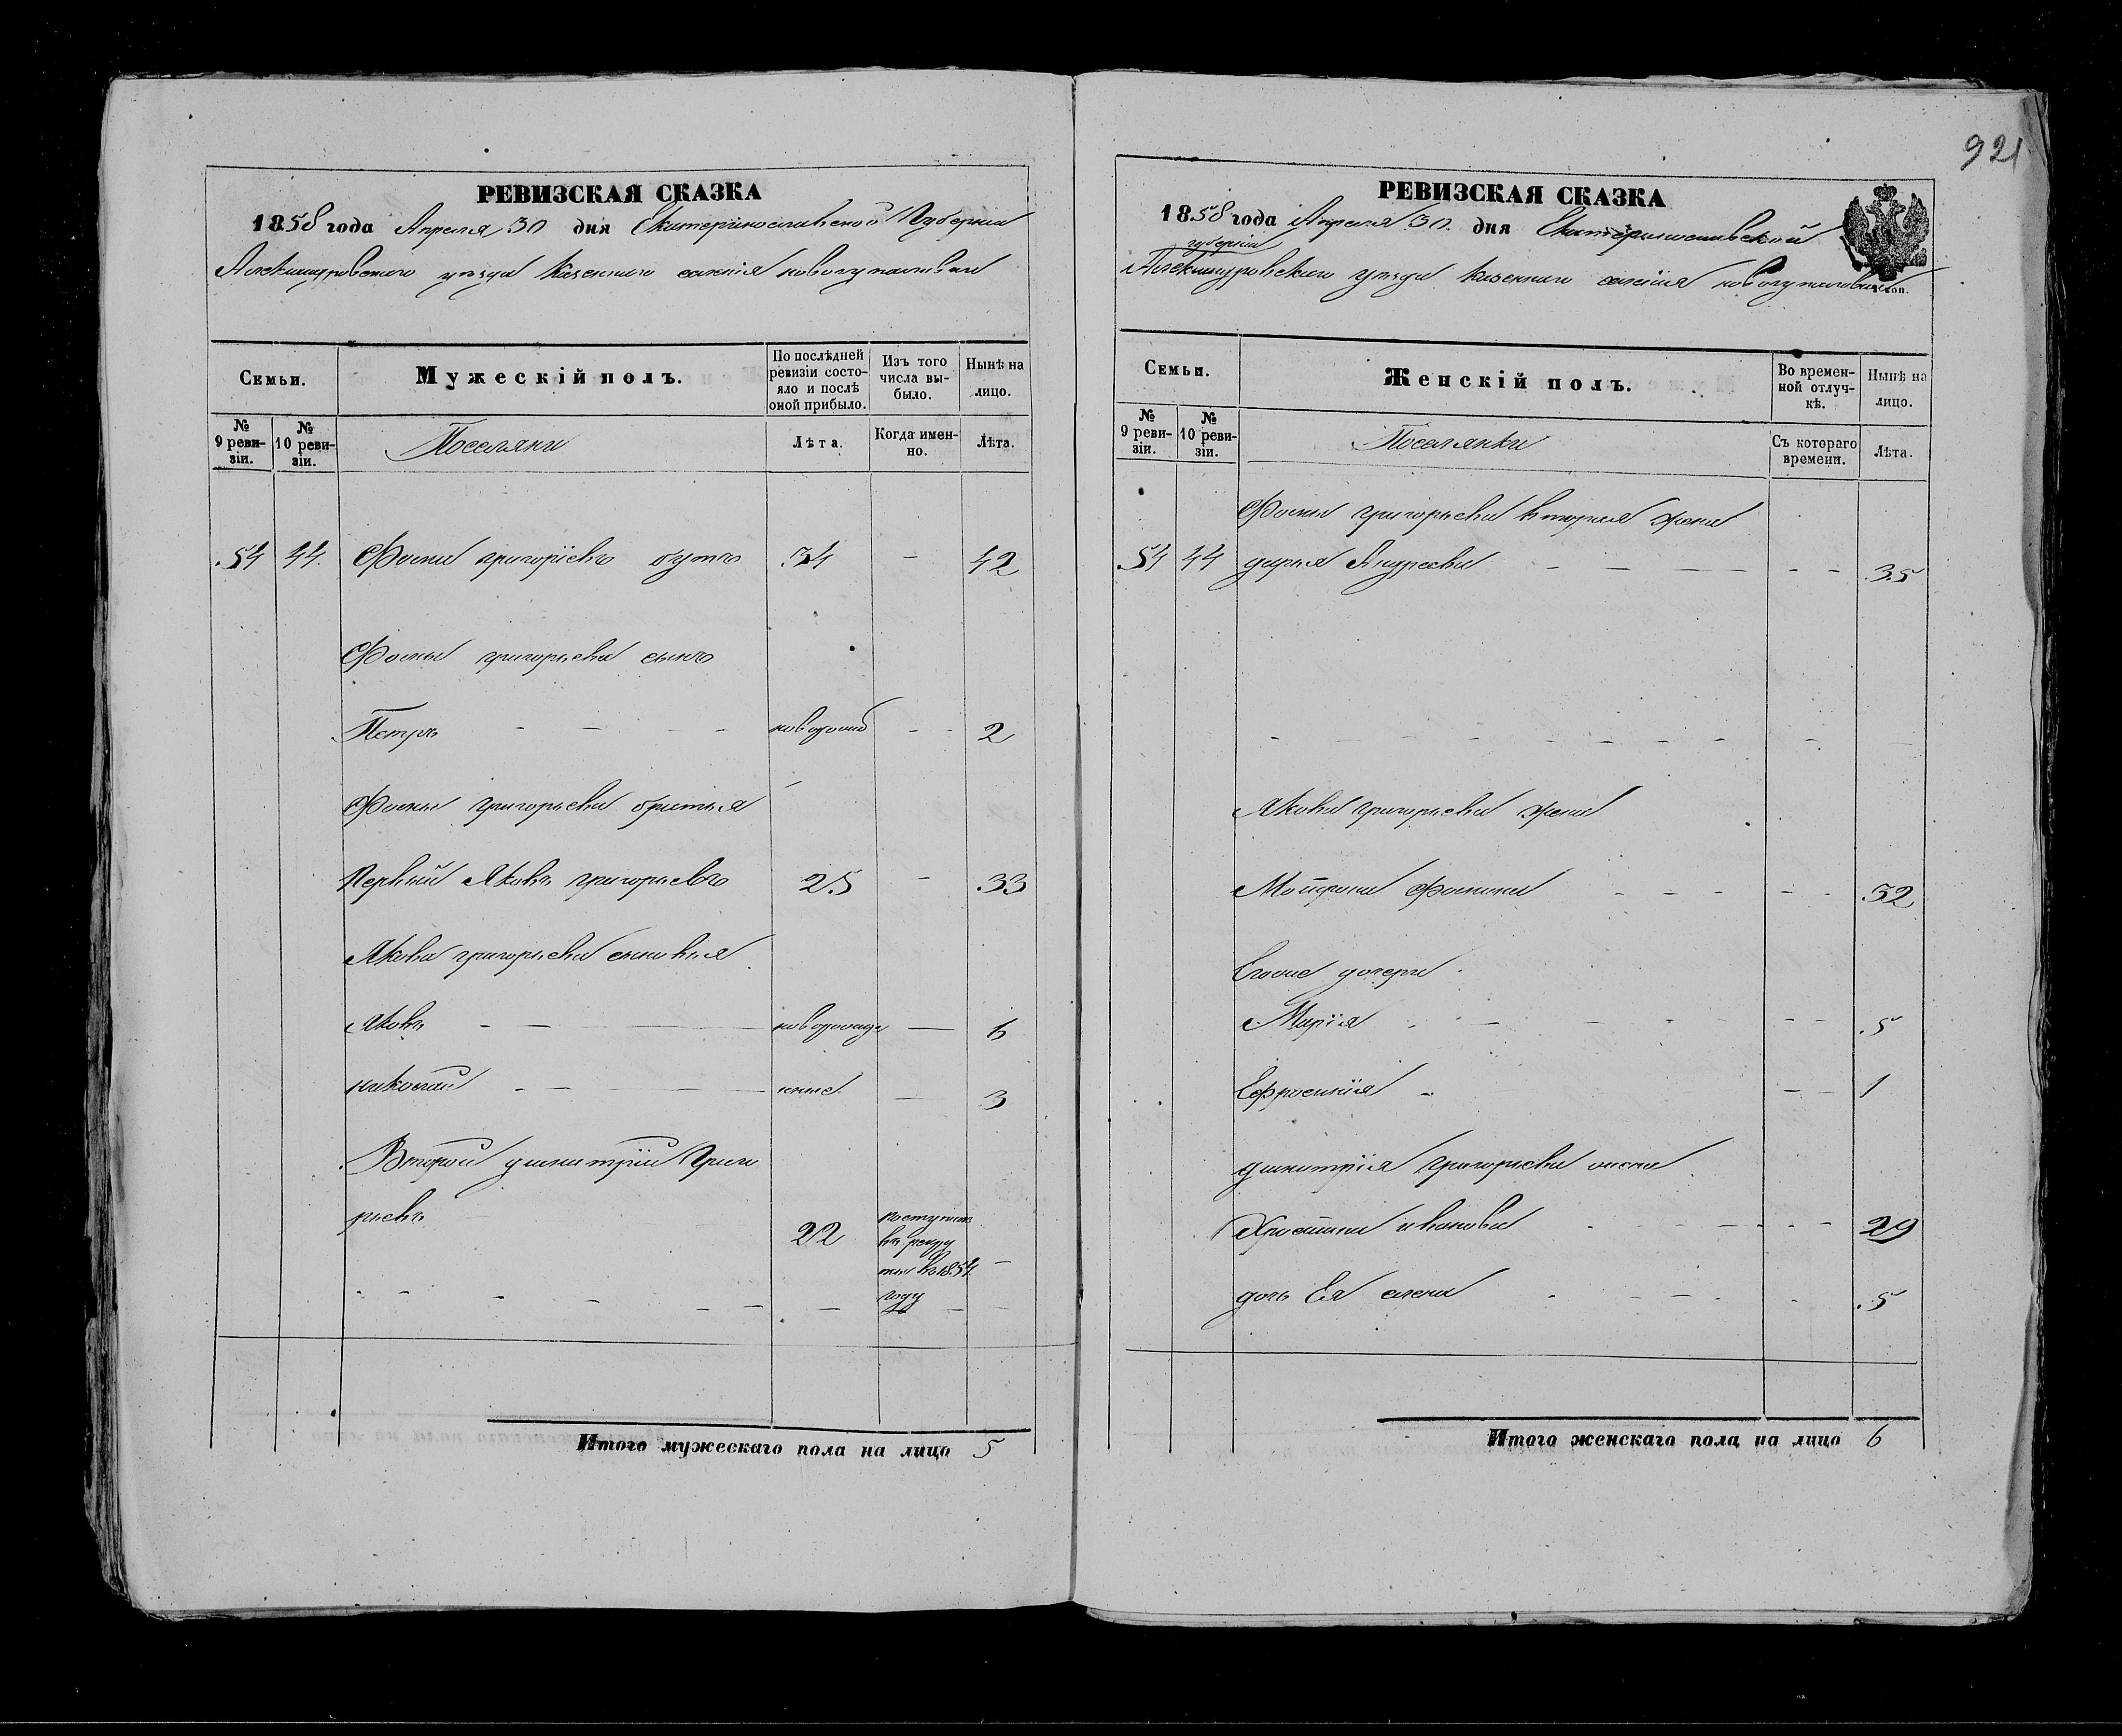 921
РЕВИЗСКАЯ СКАЗКА
1858 года Апреля 30 дня Екатеринославской Губернии
Александровского уезда Казенного селенія
Семьи.
Мужескій полъ.
По послѣдней ревизіи состояло и послѣ оной прибыло.
Изъ того числа выбыло.
Нынѣ на лицо.
№ 9 ревизіи.
№ 10 ревизіи.
Поселяни
Лѣта.
Когда именно.
Лѣта.
54 44. Фома григоріевъ 34 - 42
Фомы григорьева сынъ
Петръ - - - - новорожд - - 2
Фомы григорьева братья
Первый Яковъ григорьевъ 25 - 33
Якова григорьева сыновья
Яковъ - - новорожде — 6
николай - - нные — 3
Второй димитрій Григо
рьевъ 22 поступил
въ рекру
ты въ 1854 -
году
Итого мужескаго пола на лицо 5
РЕВИЗСКАЯ СКАЗКА
1858 года Апреля 30. дня Екатеринославской
губерніи
Александровского уезда Казенного селенія
коп.
Семьи.
Женскій полъ.
Во временной отлучкѣ.
Нынѣ на лицо.
№ 9 ревизіи.
№ 10 ревизіи.
Поселянки
Съ котораго времени.
Лѣта.
Фомы григорьева вторая жена
54 44 дарья Андреева - - - - - - 35
Якова григорьева жена
Мотрона Фомина - - - - - 32
Егоже дочери
Марія - - - - - 5
Ефросинія - - 1
димитрія григорьева жена
Христина иванова - - - - - 29
дочь Ея елена - - - 5
Итого женскаго пола на лицо 6